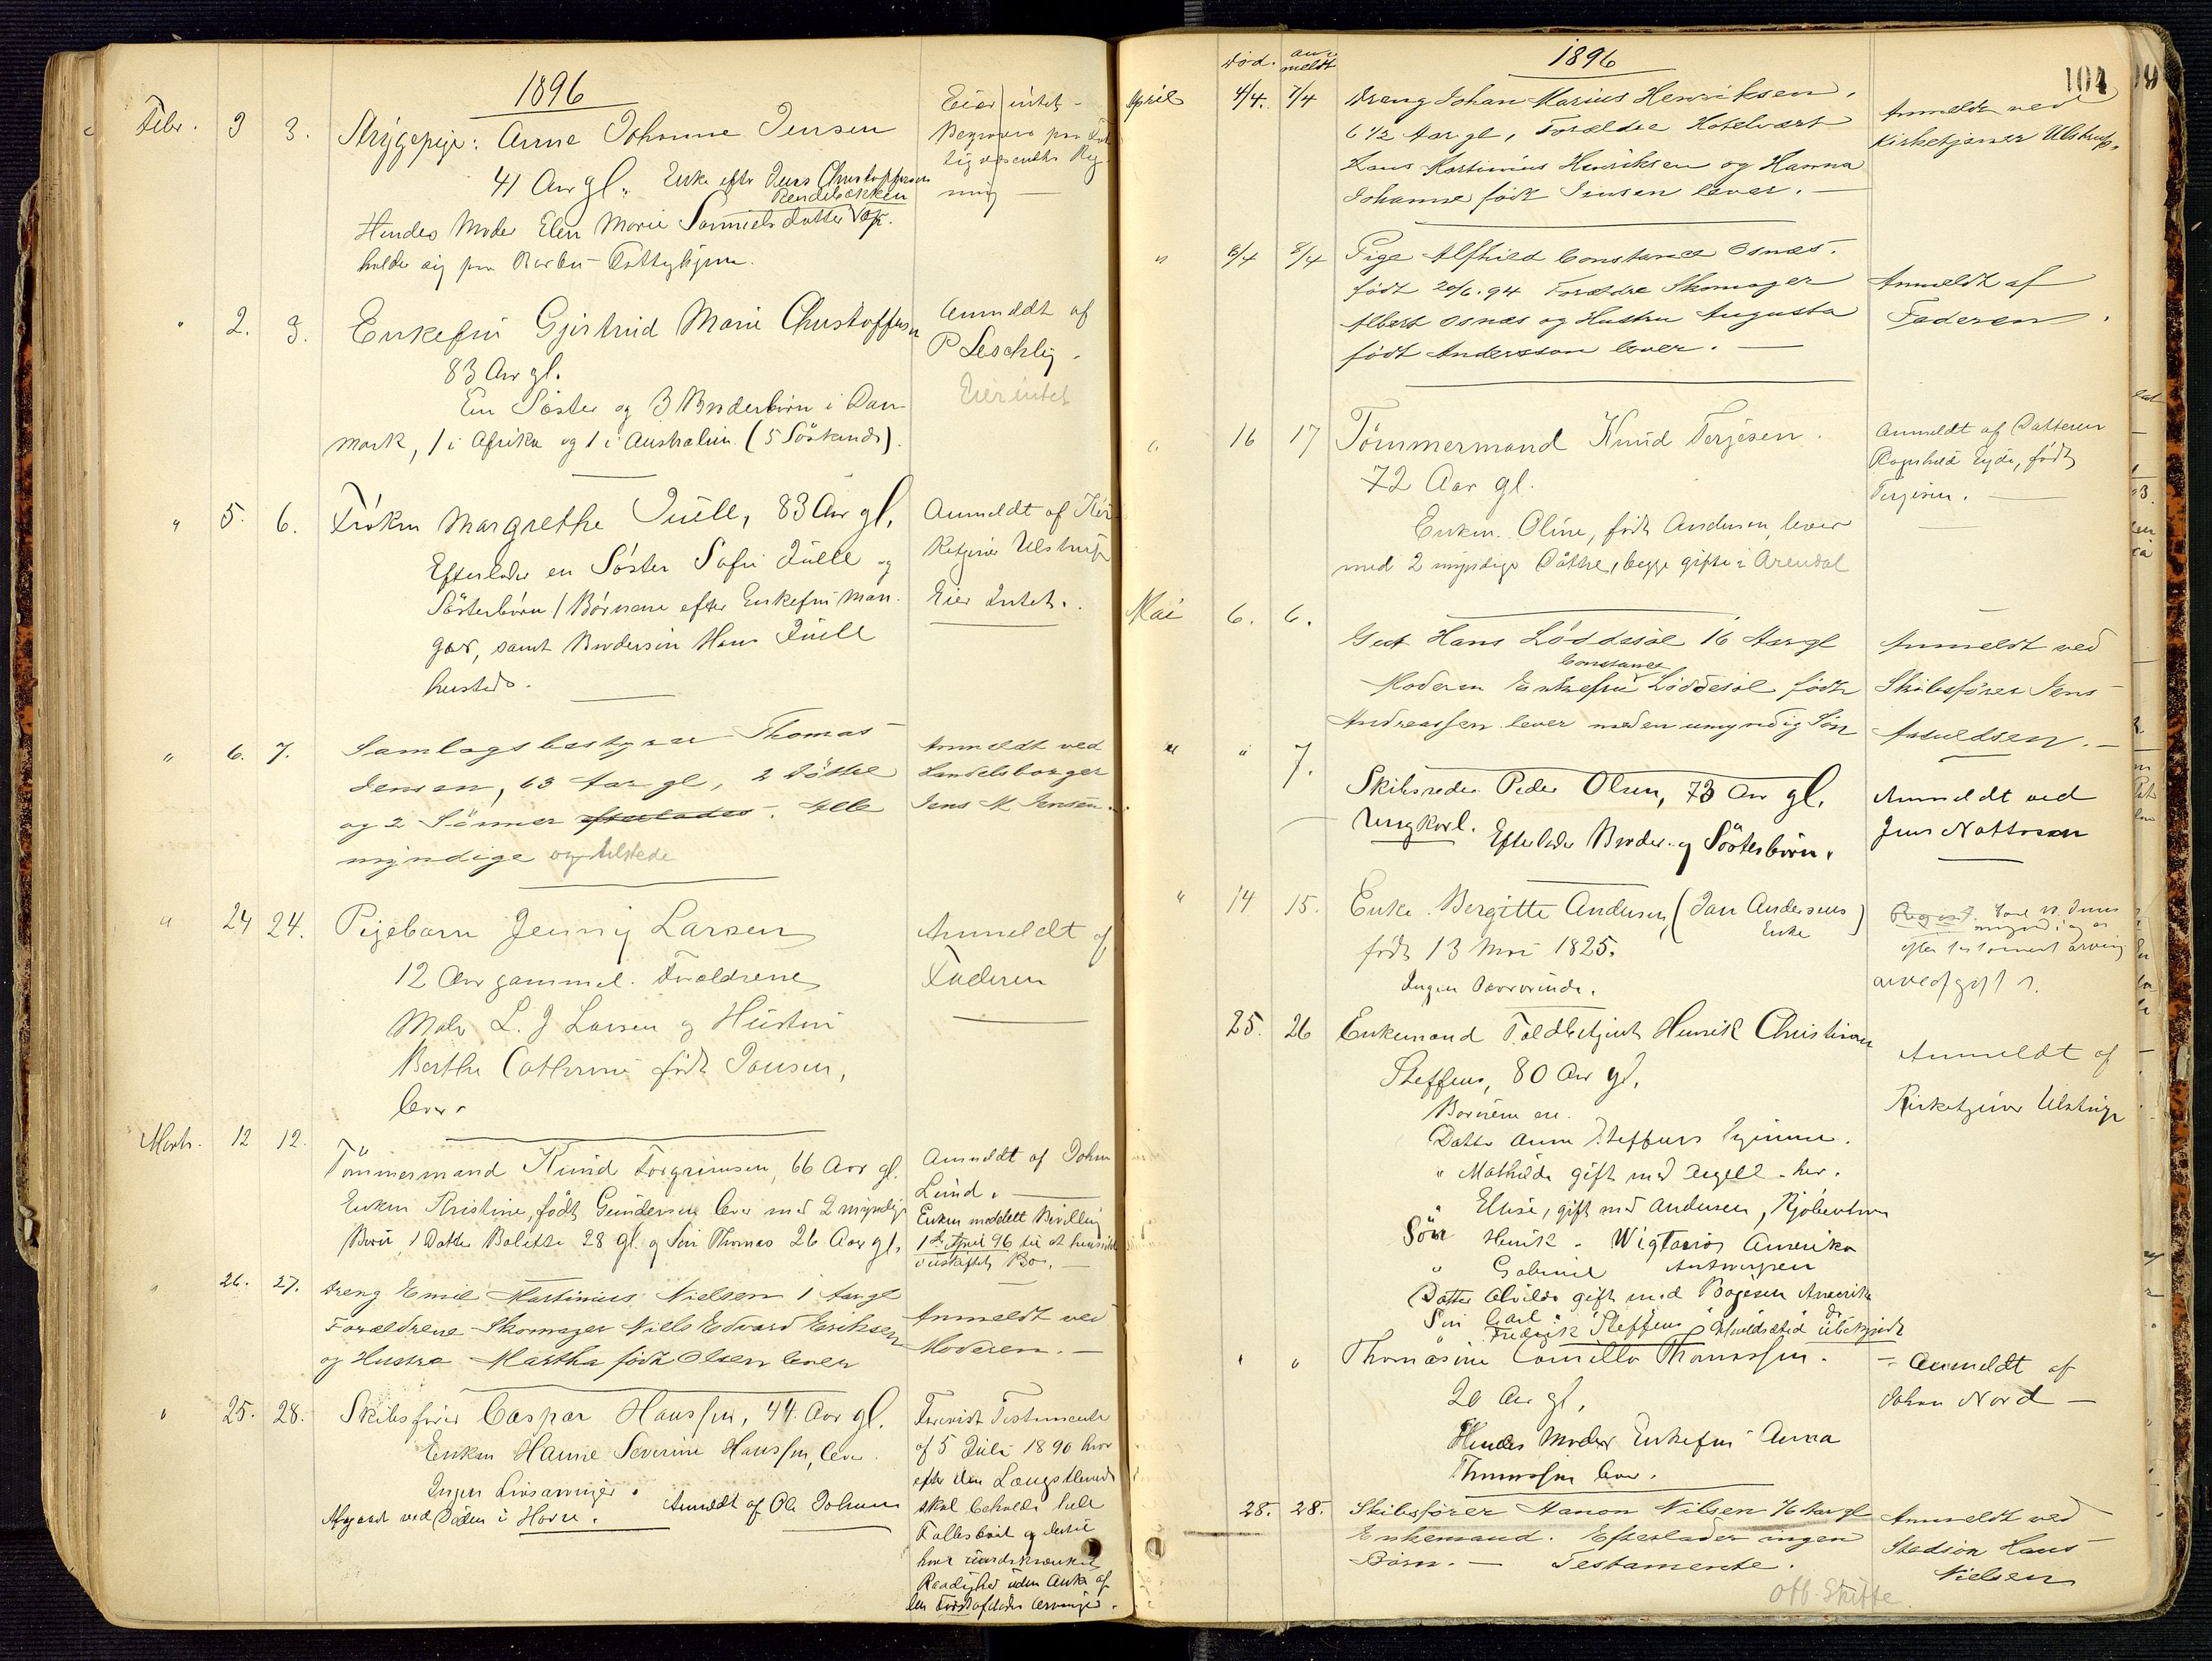 1896
Febr. 3 3. Strygepige: Anne Johanne Jensen
41 Aar gl. Enke efter Jens Christophersen
Rendebækken
Hendes Moder Elen Marie Samuelsdatter op-
holder sig paa Barbu
Eier intet -
Begraves paa
ning
" 2. 3. Enkefru Gjertrud Marie Christoffersen
83 Aar gl.
En Søster og 3 Broderbørn i Dan
mark, 1 i Afrika og 1 i Australien (5 Søskende).
Anmeldt af
P Leschly.
Eier intet
" 5. 6. Frøken Margrethe Juell, 83 Aar gl.
Efterlader en Søster Sofie Juell og
Søsterbørn / Børnene efter Enkefru Man
gor, samt Brodersøn Hans Juell
husteds.
Anmeldt af Kir
ketjener Ulstrup
Eier Intet.
" 6. 7. Samlagsbestyrer Thomas
Jensen, 63 Aar gl, 2 Døttre
og 2 Sønner efterlades. Alle
myndige og tilstede
Anmeldt ved
Handelsborger
Jens M. Jensen.
" 24 24. Pigebarn Jenny Larsen
12 Aar gammel. Forældrene
Maler L. J Larsen og Hustru
Berthe Cathrine født Jansen,
lever
Anmeldt af
Faderen
Marts. 12 12. Tømmermand Knud Torgrimsen, 66 Aar gl.
Enken Kristine, født Gundersen lever med 2 myndige
Børn 1 Datter Bolette 28 gl. og Søn Thomas 26 Aar gl.
Anmeldt af John
Lund.
Enken meddelt Bevilling
1ste April 96 til at hensidde
i uskiftet Bo.
" 26. 27. Dreng Emil Martinius Nielsen 1 Aar gl
Forældrene Skomager Niels Edvard Eriksen
og Hustru Martha født Olsen lever
Anmeldt ved
Moderen.
" 25. 28. Skibsfører Caspar Hanssen, 44 Aar gl.
Enken Hanne Severine Hanssen, lever.
Ingen Livsarvinger.
Afgaaet ved Døden i Havre. Anmeldt af Ole Johnsen
Forevist Testamente
af 5 Juli 1890 hvor
efter den Længstlevende
skal beholde hele
Fællesboet og dertil
have uindskrænket
Raadighed uden Anke af
den Førstafdødes Arvinger.
104
Død. an-
meldt
1896
April 4/4. 7/4 Dreng Johan Marius Henriksen,
6 1/2 Aar gl, Forældre Hotelvært
Hans Martinius Henriksen og Hanna
Johanne født Jensen lever.
Anmeldt ved
Kirketjener Ulstrup.
" 6/4 8/4 Pige Alfhild Constance Osnæs.
født 20/6.94 Forældre Skomager
Albert Osnæs og Hustru Augusta
født Andersson lever.
Anmeldt af
Faderen.
" 16 17 Tømmermand Knud Terjesen.
72 Aar gl.
Enken Oline, født Andersen, lever
med 2 myndige Døttre, begge gifte i Arendal
Anmeldt af Datteren
Ragnhild Eyde, født
Terjesen.
Mai 6. 6. Gut Hans Løddesøl 16 Aar gl
Constance
Moderen Enkefru Løddesøl født
Andreassen lever med en umyndig Søn
Anmeldt ved
Skibsfører Jens
Asculdsen.
" " 7. Skibsreder Peder Olsen, 73 Aar gl.
Ungkarl. Efterlader Broder- og Søsterbørn.
Anmeldt ved
Jens Nattvson
" 14 15. Enke Bergitte Andersen, (Jan Andersens
Enke)
født 13 Mai 1825.
Ingen Paarørende.
efter testament arving
arveafgift
25. 26 Enkemand Toldbetjent Henrik Christian
Steffens, 80 Aar gl.
Børnene ere.
Datter Anne Steffens hjemme.
" Mathilde gift med Angell - her.
" Elise, gift med Andersen, Kjøbenhavn
Søn Henrik - Amerika
" Gabriel Antwerpen
Datter Alvilde gift med Bøgesen Amerika
Søn Carl
" Fredrik Steffens Opholdssted ubekjendt
Anmeldt af
Kirketjener Ulstrup
" " Thomasine Camilla Thomassen.
20 Aar gl,
Hendes Moder Enkefru Anna
Thomassen lever.
Anmeldt af
Johan Nord
28. 28. Skibsfører Hanon Nilsen 76 Aar gl
Enkemand. Efterlader ingen
Børn. - Testamente.
Anmeldt ved
Stedsøn Hans
Nielsen
Off. Skifte.